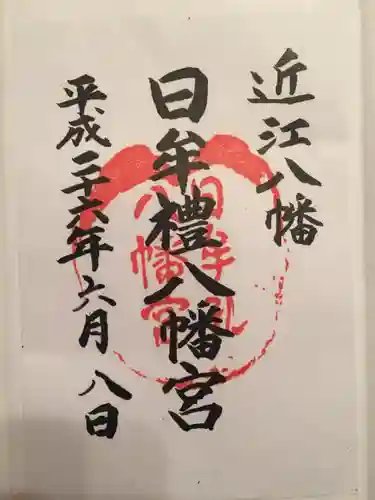 近江八幡
日牟禮八幡宮
平成二十六年六月八日
日牟礼
八幡宮